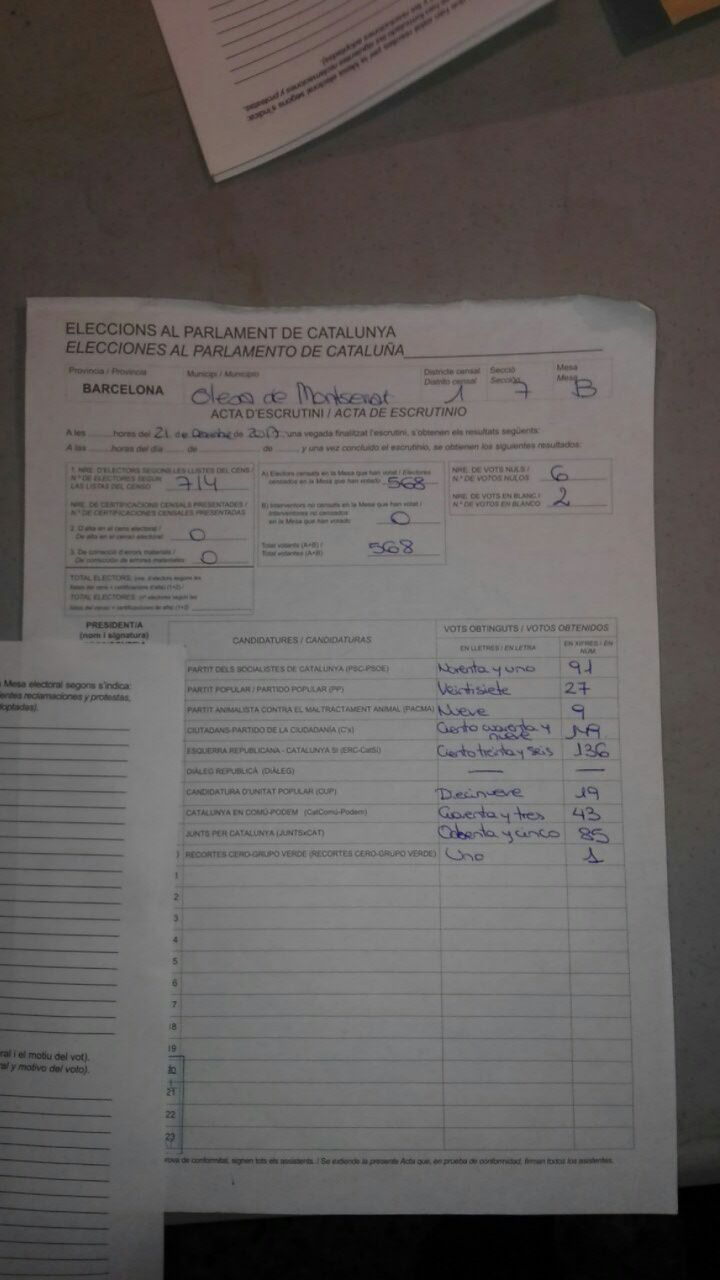 ELECCIONS AL PARLAMENT DE CATALUNYA
ELECCIONES AL PARLAMENTO DE CATALUÑA
Província / Provincia Municipi / Municipio Districte censal Secció Mesa
Distrito censal Sección Mesa
BARCELONA Olesa de Montserrat 1 7 B
ACTA D'ESCRUTINI / ACTA DE ESCRUTINIO
A les hores del 21 de Desembre de 2017, una vegada finalitzat l'escrutini, s'obtenen els resultats següents:
A las horas del día de de y una vez concluido el escrutinio, se obtienen los siguientes resultados:
1. NRE. D'ELECTORS SEGONS LES LLISTES DEL CENS /
N.º DE ELECTORES SEGÚN
LAS LISTAS DEL CENSO 714
NRE. DE CERTIFICACIONS CENSALS PRESENTADES /
N.º DE CERTIFICACIONES CENSALES PRESENTADAS
2. D'alta en el cens electoral /
De alta en el censo electoral 0
3. De correcció d'errors materials /
De corrección de errores materiales 0
TOTAL ELECTORS:
TOTAL ELECTORES:
A) Electors censats en la Mesa que han votat / Electores
censados en la Mesa que han votado 568
B) Interventors no censats en la Mesa que han votat /
Interventores no censados
en la Mesa que han votado 0
Total votants (A+B) /
Total votantes (A+B) 568
NRE. DE VOTS NULS /
N.º DE VOTOS NULOS 6
NRE. DE VOTS EN BLANC /
N.º DE VOTOS EN BLANCO 2
PRESIDENT/A
(nom i signatura)
CANDIDATURES / CANDIDATURAS
VOTS OBTINGUTS / VOTOS OBTENIDOS
EN LLETRES / EN LETRA EN XIFRES / EN NÚM.
PARTIT DELS SOCIALISTES DE CATALUNYA (PSC-PSOE) Noventa y uno 91
PARTIT POPULAR / PARTIDO POPULAR (PP) Veintisiete 27
PARTIT ANIMALISTA CONTRA EL MALTRACTAMENT ANIMAL (PACMA) Nueve 9
CIUTADANS-PARTIDO DE LA CIUDADANÍA (C's) Ciento cuarenta y nueve 149
ESQUERRA REPUBLICANA - CATALUNYA SÍ (ERC-CatSí) Ciento treinta y seis 136
DIÀLEG REPUBLICÀ (DIÀLEG) — —
CANDIDATURA D'UNITAT POPULAR (CUP) Decinueve 19
CATALUNYA EN COMÚ-PODEM (CatComú-Podem) Cuarenta y tres 43
JUNTS PER CATALUNYA (JUNTSxCAT) Ochenta y cinco 85
RECORTES CERO-GRUPO VERDE (RECORTES CERO-GRUPO VERDE) Uno 1
1
2
3
4
5
6
7
18
19
20
21
22
23
prova de conformitat, signen tots els assistents. / Se extiende la presente Acta que, en prueba de conformidad, firman todos los asistentes.
a Mesa electoral segons s'indica:
entes reclamaciones y protestas,
doptadas).
ral i el motiu del vot).
ral y motivo del voto).